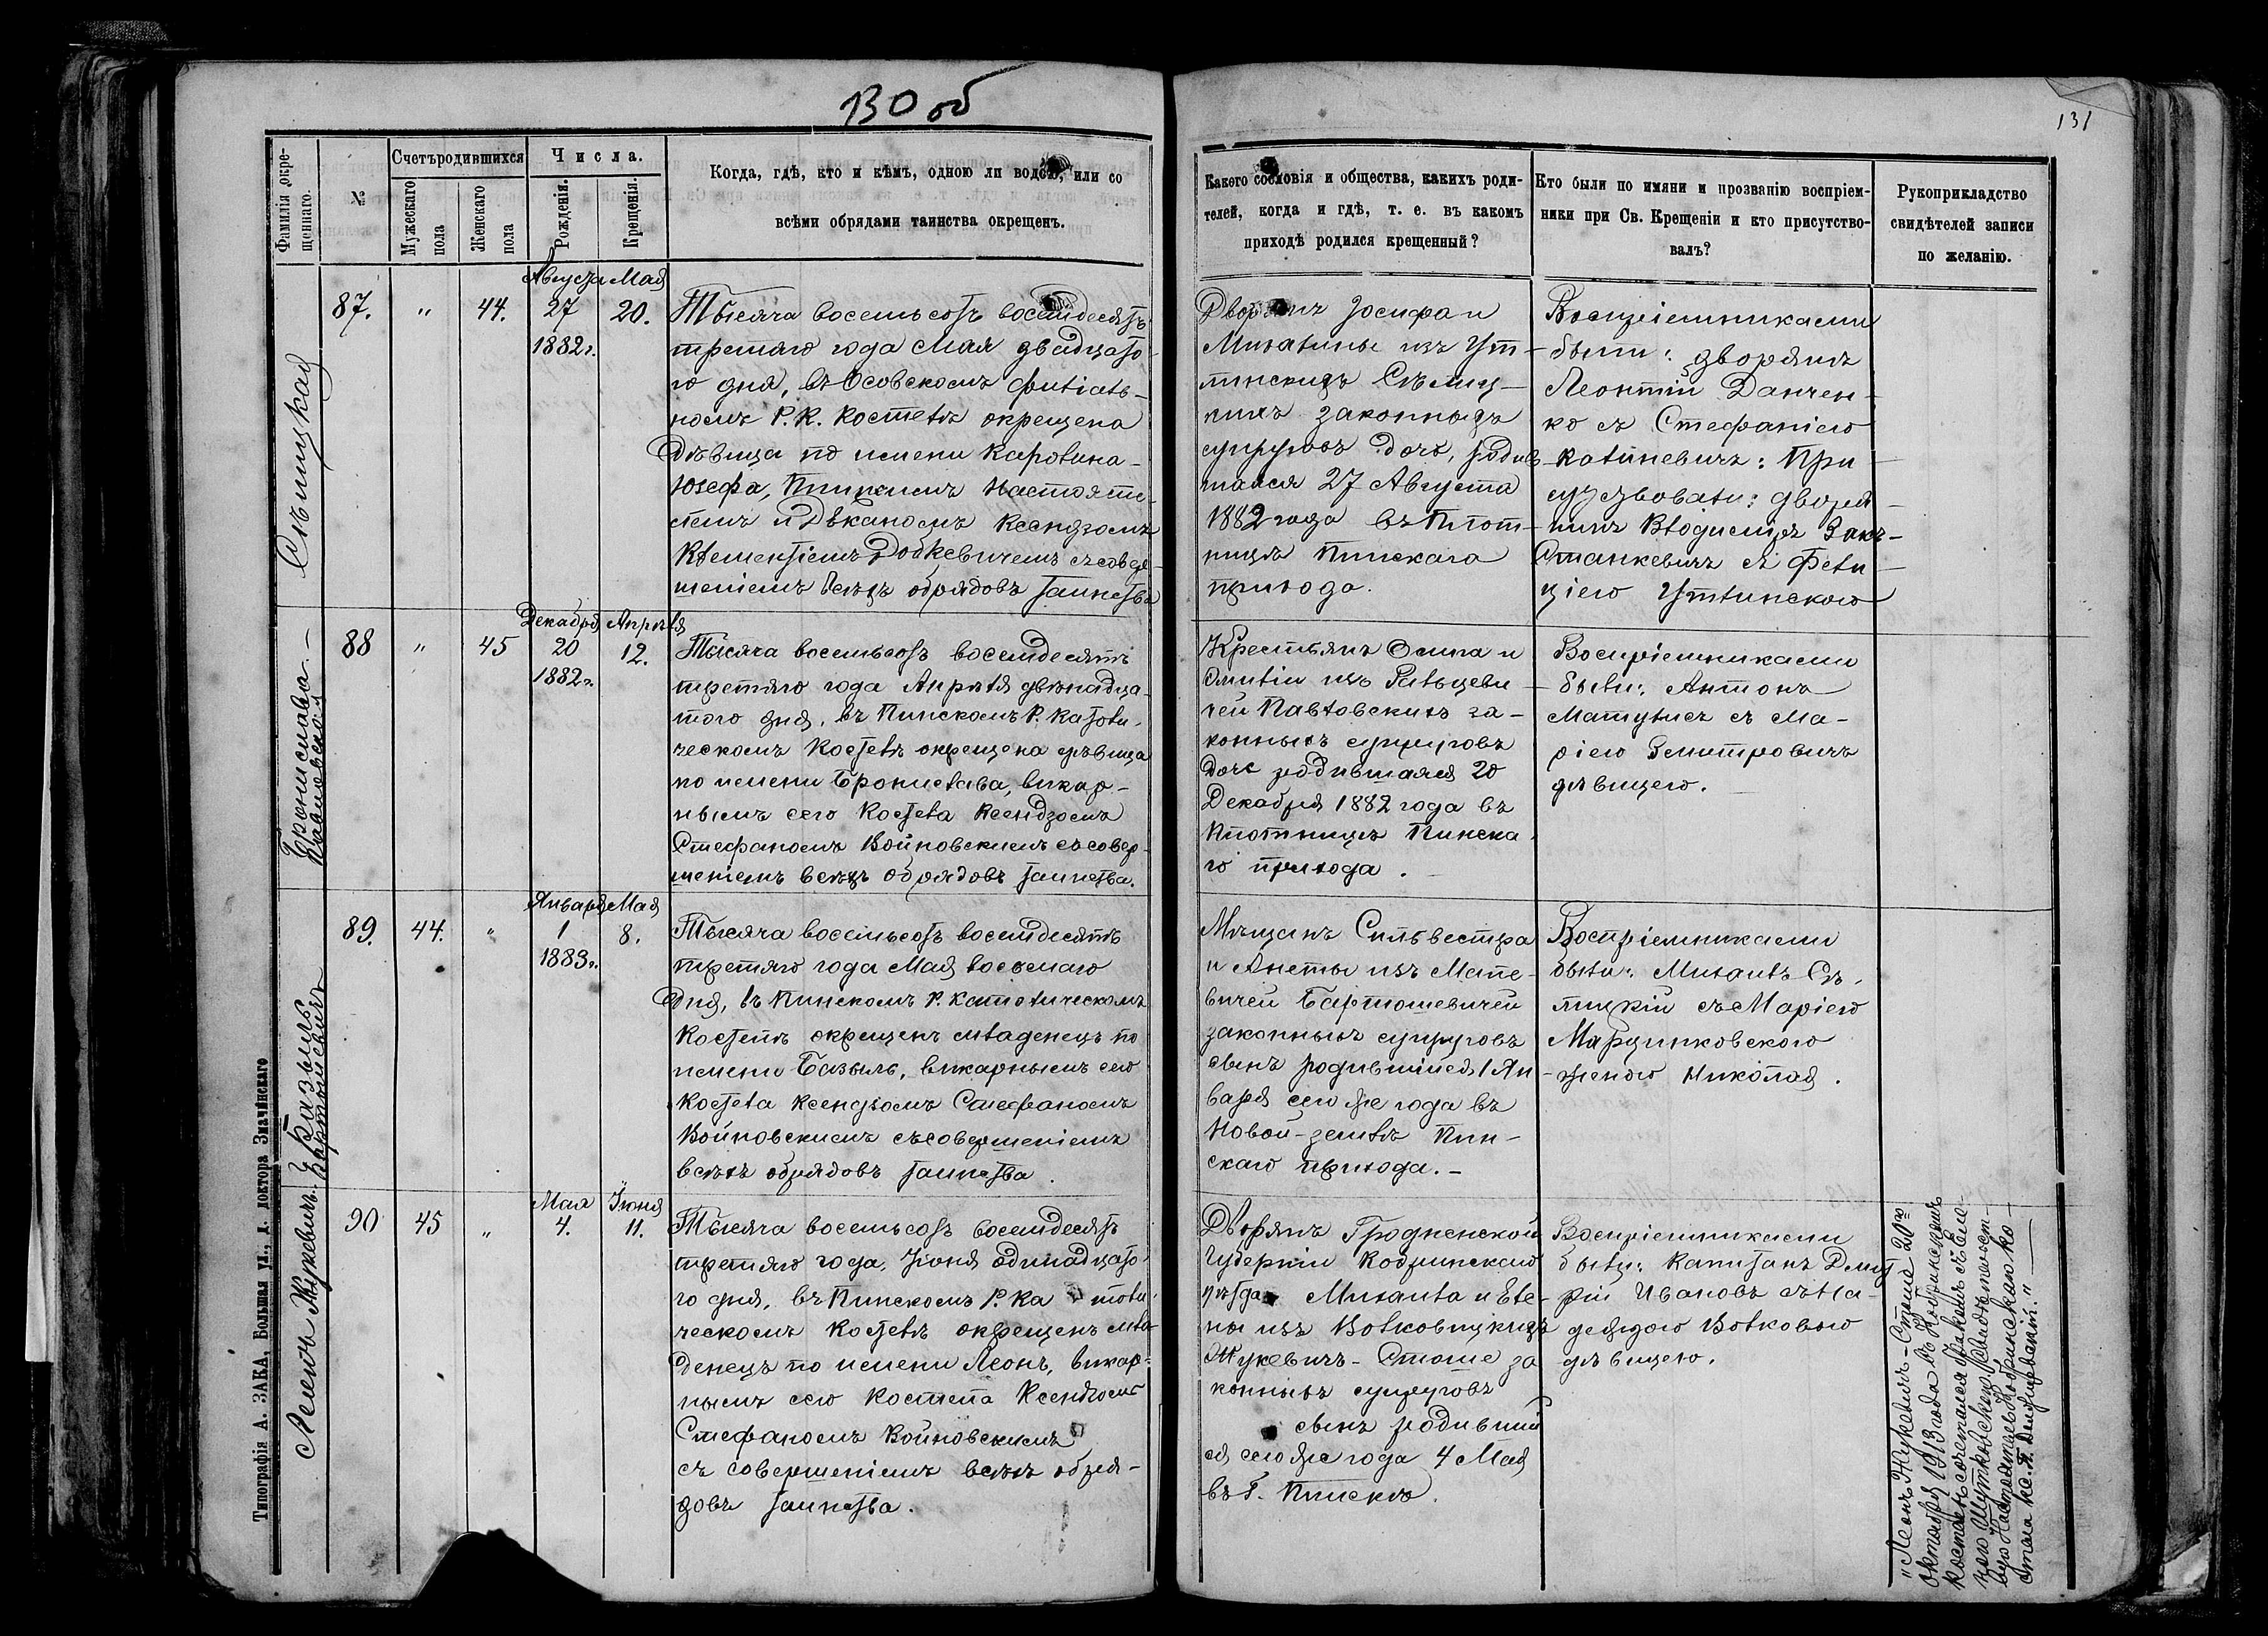 130 об
131
Фамилія окре-
щеннаго.
№
Счетъ родившихся
Мужескаго
пола
Женскаго
пола
Числа.
Рожденія.
Крещенія.
Когда, гдѣ, кто и кѣмъ, одною ли водою, или со
всѣми обрядами таинства окрещенъ.
Какого сословія и общества, какихъ роди-
телей, когда и гдѣ, т. е. въ какомъ
приходѣ родился крещенный?
Кто были по имяни и прозванію воспріем-
ники при Св. Крещеніи и кто присутство-
валъ?
Рукоприкладство
свидѣтелей записи
по желанію.
87.
"
44.
Августа
27
1882 г.
Мая
20.
Тысяча восемьсотъ восемдесятъ
третяго года Мая двадцато-
го дня, въ Осовскомъ филіаль-
номъ Р. К. Костелѣ окрещена
дѣвица по имени Каролина-
Юзефа, Пинскимъ Настояте-
лемъ и Дѣканомъ Ксендзомъ
Клеменсіемъ съ совер-
шеніемъ всѣхъ обрядовъ таинства
Дворянъ Іосифа и
изъ
законныхъ
супруговъ дочь, родив-
шаяся 27 Августа
1882 года въ Плот-
ницѣ Пинскаго
прихода.
Воспріемниками
были: дворянъ
Леонтій Данчен-
ко съ Стефаніею
Калиневичъ: При
сутствовали: дворя-
нинъ Владиміръ
Станкевичъ съ Фели-
ціею
Бронислава
Павловская
88
"
45
Декабря
20
1882 г.
Апрѣля
12.
Тысяча восемьсотъ восемдесятъ
третяго года Апрѣля двѣнадца-
того дня, въ Пинскомъ Р. Католи-
ческомъ Костелѣ окрещена дѣвица
по имени Бронислава, викар-
нымъ сего Костела Ксендзомъ
Стефаномъ Войновскимъ съ совер-
шеніемъ всѣхъ обрядовъ таинства.
Крестьянъ Осипа и
Эмиліи изъ Ральцеви-
чей Павловскихъ за-
конныхъ супруговъ
дочь родившаяся 20
Декабря 1882 года въ
Плотницѣ Пинска-
го прихода.
Воспріемниками
были: Антонъ
Матулисъ съ Ма-
ріею
дѣвицею.
Базыль
Бартошевичъ
89.
44.
"
Января
1
1883 г.
Мая
8.
Тысяча восемьсотъ восемдесятъ
третяго года Мая восьмаго
дня, въ Пинскомъ Р. Католическомъ
Костелѣ окрещенъ младенецъ по
имени Базыль, викарнымъ сего
Костела Ксендзомъ Стефаномъ
Войновскимъ съ совершеніемъ
всѣхъ обрядовъ таинства.
Мѣщанъ Сильвестра
и Анеты изъ Мате-
вичей Бартошевичей
законныхъ супруговъ
сынъ родившійся 1 Ян-
варя сего же года въ
Новой-землѣ Пин-
скаго прихода.
Воспріемниками
были: Михаилъ Сѣ-
лицкій съ Маріею
Марцинковскою
женою Николая.
Леонъ Жукевичъ
90
45
"
Мая
4.
Іюня
11.
Тысяча восемьсотъ восемдесятъ
третяго года, Іюня одинадцато-
го дня, въ Пинскомъ Р. Католи-
ческомъ Костелѣ окрещенъ мла-
денецъ по имени Леонъ, викар-
нымъ сего Костела Ксендзомъ
Стефаномъ Войновскимъ
съ совершеніемъ всѣхъ обря-
довъ таинства.
Дворянъ Гродненской
Губерніи Кобринскаго
уѣзда Михаила и Еле-
ны изъ Волковицкихъ
Жукевичъ-Стоше за-
конныхъ супруговъ
сынъ родивший-
ся сего же года 4 Мая
въ Г. Пинскѣ.
Воспріемниками
были: Капитанъ Дмит-
рій Ивановъ съ На-
деждою Волковою
дѣвицею.
"Леонъ Жукевичъ-Стоше 20го
октября 1913 года въ Кобринскомъ
костелѣ сочетался бракомъ съ Еле-
ною Шутковскою, свидѣтельст-
вую Настоятель Кобринскаго ко-
стела кс.
Типографія А. ЗАКА, Большая ул., д. доктора Знамѣнскаго